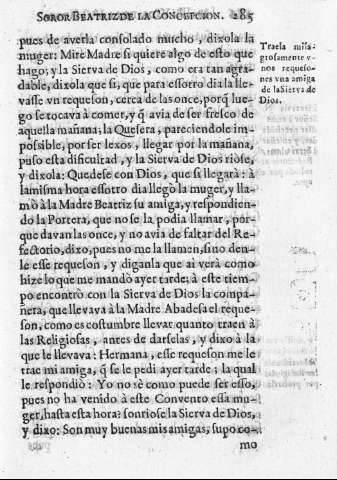 SOROR BEATRIZ DE LA CONCEPCION. 285
pues de averla consolado mucho, dixola la
muger: Mire Madre si quiere algo de esto que
hago; y la Sierva de Dios, como era tan agra-
dable, dixola que si, que para essotro dia la lle-
vasse vn requeson, cerca de las once, porq̃ lue-
go se tocava à comer, y q̃ avia de ser fresco de
aquella mañana, la Quesera, pareciendole im-
possible, por ser lexos, llegar por la mañana,
puso esta dificultad, y la Sierva de Dios riòse,
y dixola: Quedese con Dios, que si llegarà: à
la misma hora essotro dia llegò la muger, y lla-
mò à la Madre Beatriz su amiga, y respondien-
do la Portera, que no se la podia llamar, por-
que davan las once, y no avia de faltar del Re-
fectorio, dixo, pues no me la llamen, sino den-
le esse requeson, y diganla que ai verà como
hize lo que me mandò ayer tarde; à este tiem-
po encontrò con la Sierva de Dios la compa-
ñera, que llevava à la Madre Abadesa el reque-
son, como es costumbre llevar quanto traen à
las Religiosas, antes de darselas, y dixo à la
que le llevava: Hermana, esse requeson me le
trae mi amiga, q̃ se le pedi ayer tarde; la qual
le respondiò: Yo no sè como puede ser esso,
pues no ha venido à este Convento essa mu-
ger, hasta esta hora: sonriose la Sierva de Dios,
y dixo: Son muy buenas mis amigas, supo co-
mo
Traela mila-
grosamente v-
nos requeso-
nes vna amiga
de la Sierva de
Dios.